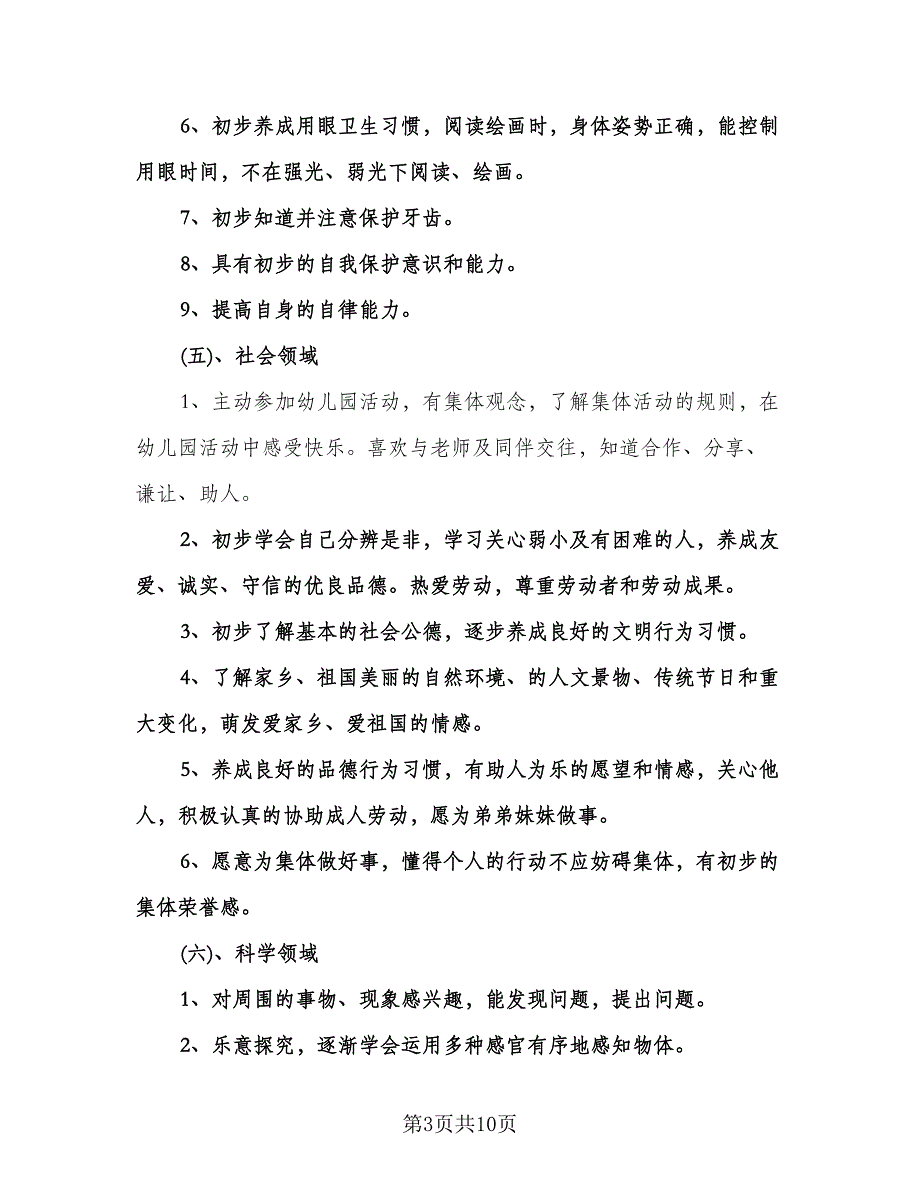 6、初步养成用眼卫生习惯，阅读绘画时，身体姿势正确，能控制
用眼时间，不在强光、弱光下阅读、绘画。
7、初步知道并注意保护牙齿。
8、具有初步的自我保护意识和能力。
9、提高自身的自律能力。
(五)、社会领域
1、主动参加幼儿园活动，有集体观念，了解集体活动的规则，在
幼儿园活动中感受快乐。喜欢与老师及同伴交往，知道合作、分享、
谦让、助人。
2、初步学会自己分辨是非，学习关心弱小及有困难的人，养成友
爱、诚实、守信的优良品德。热爱劳动，尊重劳动者和劳动成果。
3、初步了解基本的社会公德，逐步养成良好的文明行为习惯。
4、了解家乡、祖国美丽的自然环境、的人文景物、传统节日和重
大变化，萌发爱家乡、爱祖国的情感。
5、养成良好的品德行为习惯，有助人为乐的愿望和情感，关心他
人，积极认真的协助成人劳动，愿为弟弟妹妹做事。
6、愿意为集体做好事，懂得个人的行动不应妨碍集体，有初步的
集体荣誉感。
(六)、科学领域
1、对周围的事物、现象感兴趣，能发现问题，提出问题。
2、乐意探究，逐渐学会运用多种感官有序地感知物体。
第3页共10页